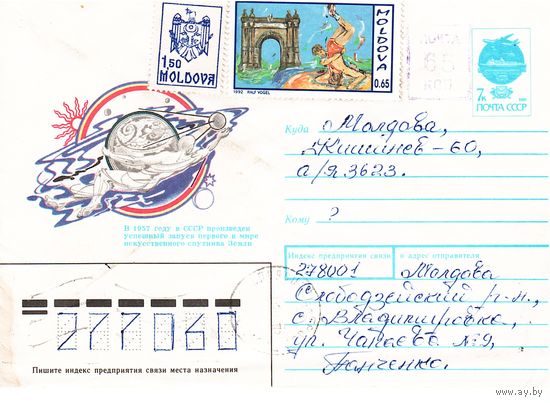 1.50
MOLDOVA
MOLDOVA
0.65
1992 RALF VOGEL
ПОЧТА
65
КОП
7к
ПОЧТА СССР
В 1957 году в СССР произведен
успешный запуск первого в мире
искусственного спутника Земли
Куда Молдова,
г. Кишинев-60,
а/я 3623.
Кому ?
Индекс предприятия связи и адрес отправителя
278001 Молдова
Слободзейский р-н.,
с. Владимировка,
ул. Чапаева №9,
Панченко.
277060
Пишите индекс предприятия связи места назначения
www.ay.by